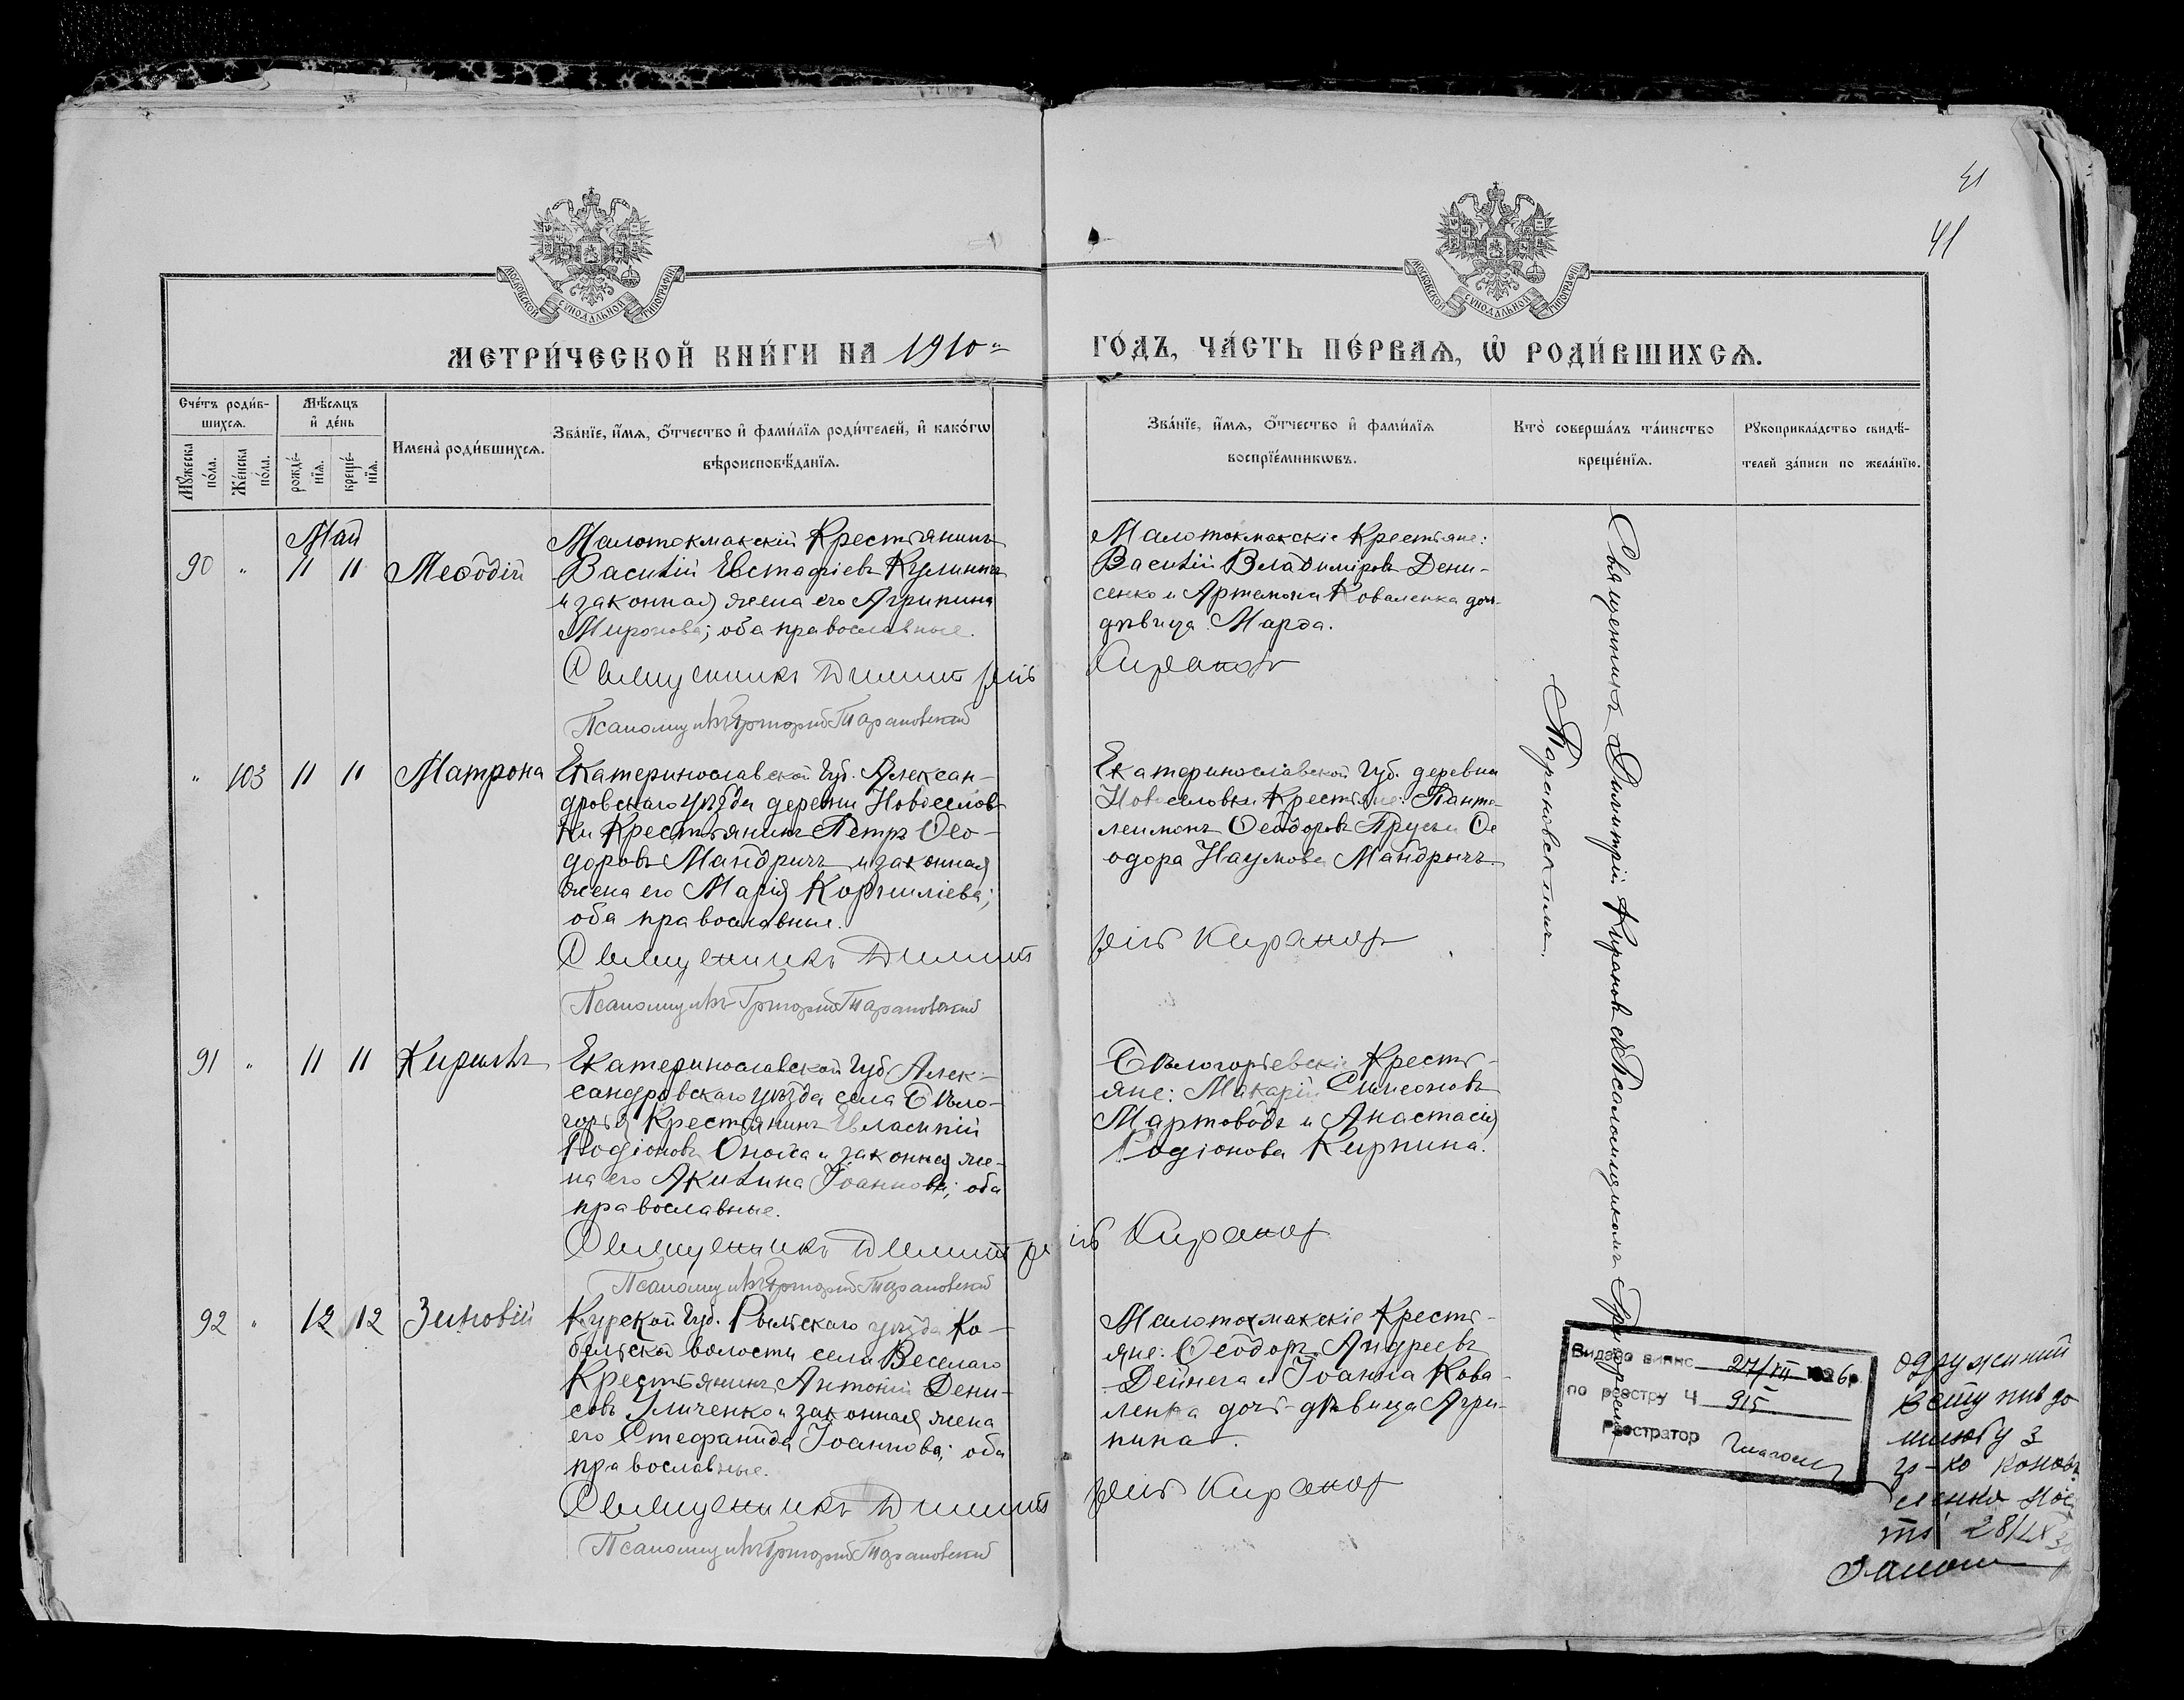 41
41
МОСКОВСКОЙ СѴНОДАЛЬНОЙ ТИПОГРАФІИ
МОСКОВСКОЙ СѴНОДАЛЬНОЙ ТИПОГРАФІИ
МЕТРИ́ЧЕСКОЙ КНИ́ГИ НА 1910 й
ГО́ДЪ, ЧА́СТЬ ПЕ́РВАѦ, Ѡ҆ РОДИ́ВШИХСѦ.
Сче́тъ роди́в-
шихсѧ.
Мꙋ́жеска по́ла.
Же́нска по́ла.
Мѣ́сѧцъ
и҆ де́нь
рожде́-
нїѧ.
креще́-
нїѧ.
Имена̀ роди́вшихсѧ.
Зва́нїе, и҆́мѧ, ѻ҆́тчество и҆ фами́лїѧ роди́телей, и҆ како́гѡ
вѣроисповѣ́данїѧ.
Зва́нїе, и҆́мѧ, ѻ҆́тчество и҆ фами́лїѧ
воспрїе́мникѡвъ.
Кто̀ соверша́лъ та́инство
креще́нїѧ.
Рꙋкоприкла́дство свидѣ́-
телей за́писи по жела́нїю.
Май
90 " 11 11 Меѳодій
Малотокмакскій Крестьянинъ
Василій Евстафіевъ
и законная жена его Агрипина
Миронова; оба православные.
Священникъ Димитрій Киранов
Псаломщикъ Григорий Тарановский
Малотокмакскіе Крестьяне:
Василій Владиміровъ Дени-
сенко и Артемона Коваленка доч.
дѣвица Марѳа.
" 103 11 11 Матрона
Екатеринославской Губ. Алексан-
дровскаго уѣзда деревни Новоселов-
ки Крестьянинъ Петръ Ѳео-
доровъ Мандричъ и законная
жена его Марія Корниліева;
оба православные.
Священникъ Димитрій Киранов
Псаломщикъ Григорий Тарановский
Екатеринославской Губ. деревни
Новоселовки Крестьяне: Панте-
леимонъ Ѳеодоровъ и Ѳе
одора Наумова Мандричъ.
91 " 11 11 Кириллъ
Екатеринославской Губ. Алек-
сандровскаго уѣзда села Бѣло-
горья Крестьянинъ Евласпій
Родіоновъ и законная же-
на его Акилина Іоаннова; оба
православные.
Священникъ Димитрій Киранов
Псаломщикъ Григорий Тарановский
Бѣлогорьевскіе Кресть-
яне: Макарій Симеоновъ
Мартоводъ и Анастасія
Родіонова Кирпина.
92 " 12 12 Зиновій
Курской Губ. Рыльскаго уѣзда Ко-
бельской волости села Веселаго
Крестьянинъ Антоній Дени-
совъ и законная жена
его Стефанида Іоаннова; оба
православные.
Священникъ Димитрій Киранов
Псаломщикъ Григорий Тарановский
Малотокмакскіе Кресть-
яне: Ѳеодоръ Андреевъ
Дейнега и Іоанна Кова-
ленка дочь-дѣвица Агри-
пина.
Священникъ Димитрій Кирановъ съ Псаломщикомъ Григоріемъ
Тарановскимъ.
Видано виписа 27/VII 1926р.
по реєстру Ч 915
Реєстратор
одружений
28/IX